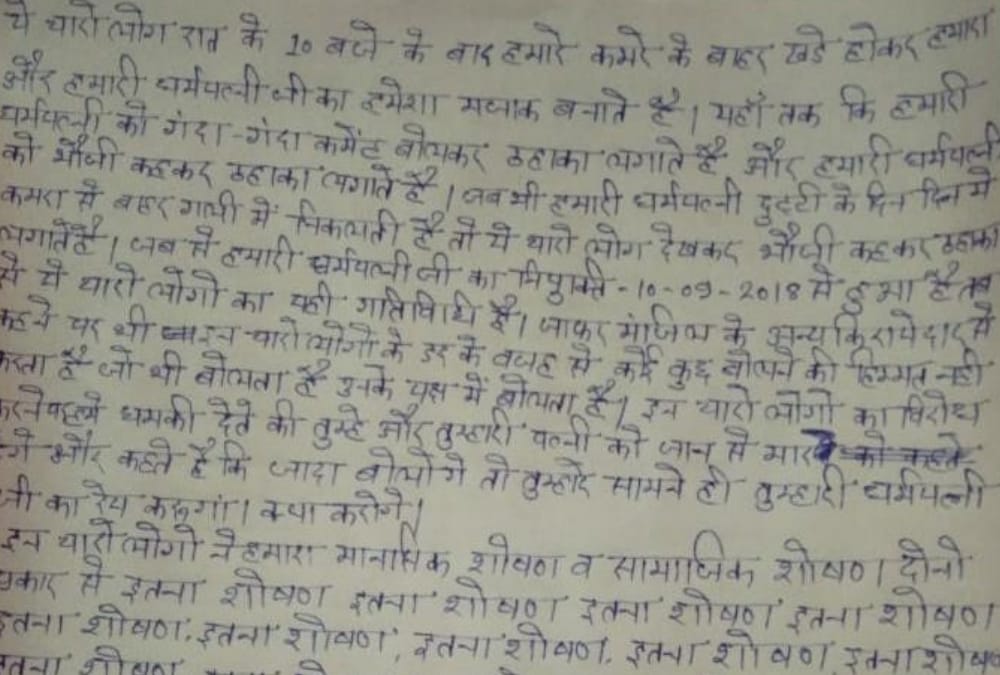 ये चारो लोग रात के 10 बजे के बाद हमारे कमरे के बाहर खडे होकर हमारा
और हमारी धर्मपत्नी जी का हमेशा मजाक बनाते है। यहाँ तक कि हमारी
धर्मपत्नी को गंदा-गंदा कमेंट बोलकर ठहाका लगाते है और हमारी धर्मपत्नी
को भौजी कहकर ठहाका लगाते है। जब भी हमारी धर्मपत्नी छुट्टी के दिन दिन मे
कमरा से बाहर गली में निकलती है तो ये चारो लोग देखकर भौजी कहकर ठहाका
लगाते है। जब से हमारी धर्मपत्नी जी का नियुक्ति -10-09-2018 मे हुआ है तब
से ये चारो लोगो का यही गतिविधि है। जाफर मंजिल के अन्य किरायेदार से
कहने पर भी इन चारो लोगो के डर के वजह से कोई कुछ बोलने की हिम्मत नही
करता है जो भी बोलता है उनके पक्ष में बोलता है। इन चारो लोगो का विरोध
करने पर धमकी देते की तुम्हे और तुम्हारी पत्नी को जान से मार
और कहते है कि जादा बोलोगे तो तुम्हारे सामने ही तुम्हारी धर्मपत्नी
जी का रेप करूगां। क्या करोगे।
इन चारो लोगो ने हमारा मानसिक शोषण व सामाजिक शोषण। दोनो
प्रकार से इतना शोषण इतना शोषण इतना शोषण, इतना शोषण।
इतना शोषण, इतना शोषण, इतना शोषण, इतना शोषण, इतना शोषण
इतना शोषण